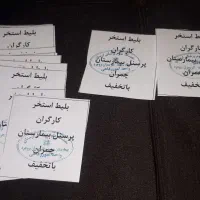 بلیط استخر
کارگران
بلیط استخر
کارگران
پرسنل بیمارستان
چمران
باتخفیف
بلیط استخر
کارگران
پرسنل بیمارستان
چمران
باتخفیف
بلیط استخر
کارگران
پرسنل بیمارستان
چمران
باتخفیف